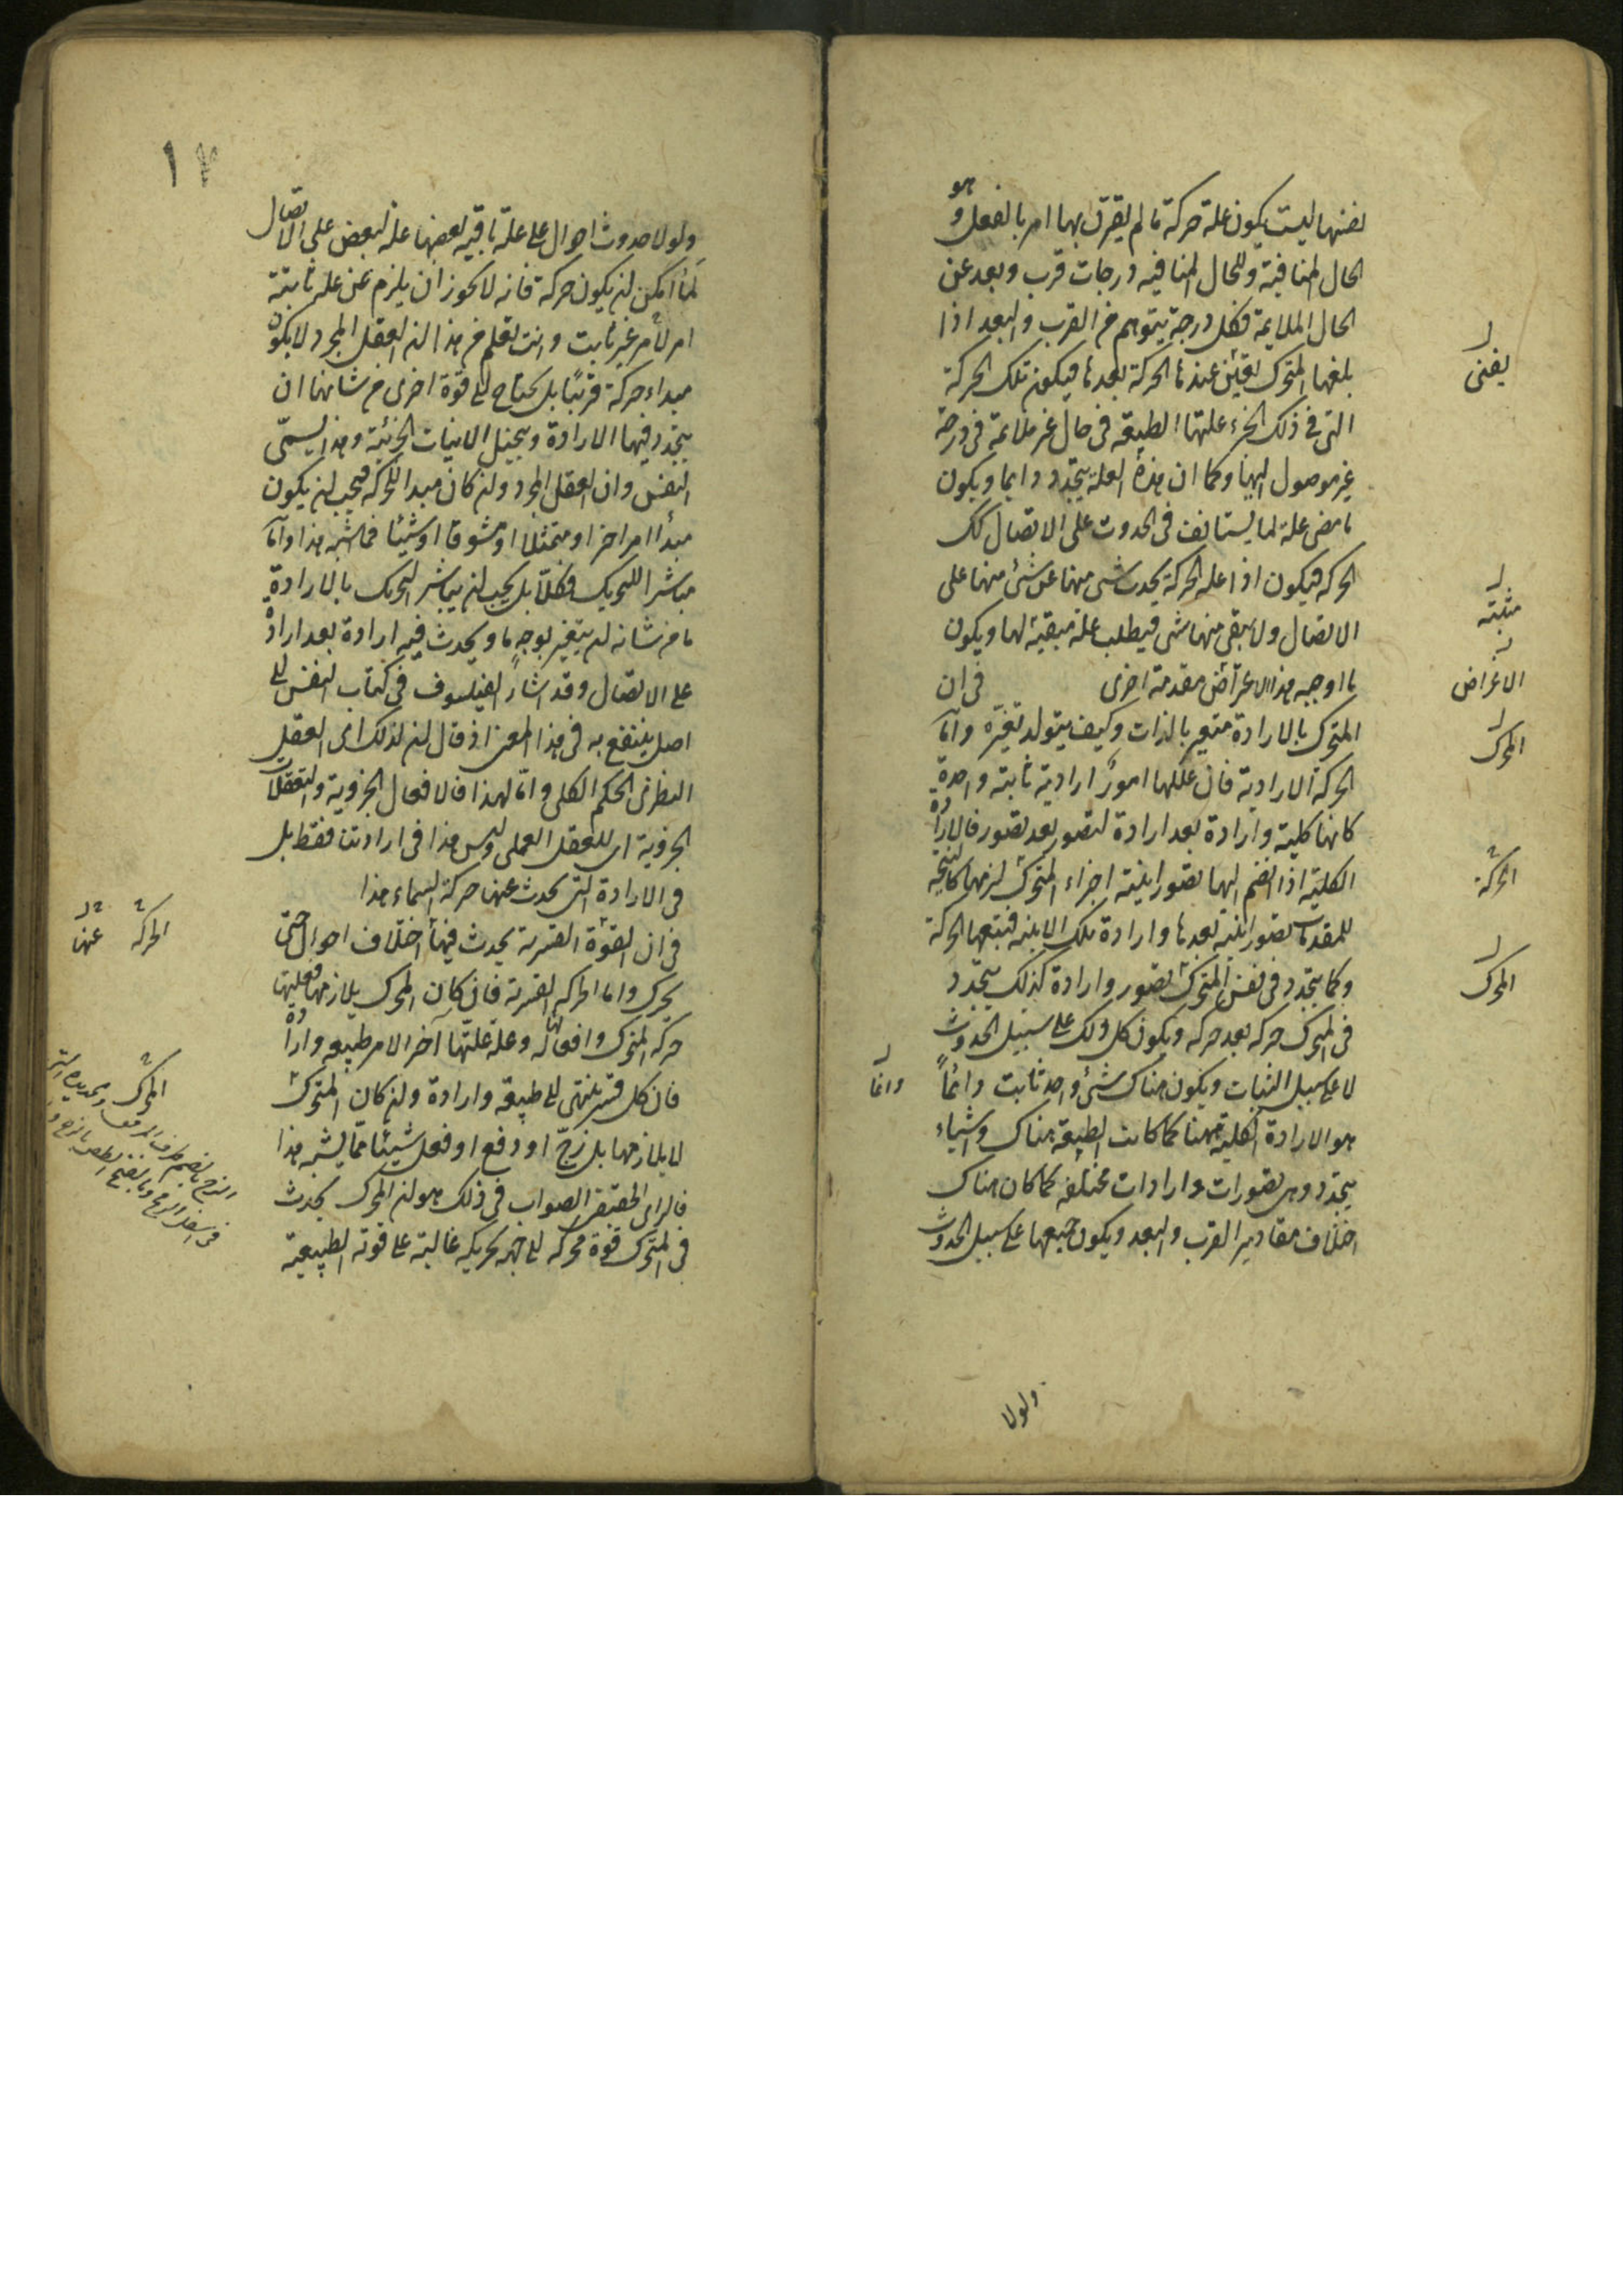 لنفسها ليست يكون علة حركة ما لم يقترن بها امر بالفعل وهو
الحال المنافية وللحال المنافيه درجات قرب وبعد عن
الحال الملايمة فكل درجة يتوهم من القرب والبعد اذا
بلغها المتحرك تعين عندها الحركة بعدها فيكون تلك الحركة
التى فى ذلك الجزء علتها الطبيعه فى حال غير ملايمة فى درجة
غير موصول اليها وكما ان هذه العلة يتجدد دايما ويكون
ما مضى علة لما يستانف فى الحدوث على الاتصال كك
الحركه فيكون اذا علة الحركة يحدث شى منها عن شئ منها على
الاتصال ولا يبقى منها شى فيطلب علة مبقية لها ويكون
ما اوجبه هذا الاعراض مقدمة اخرى فى ان
المتحرك بالارادة متغير بالذات وكيف يتولد تغيره واما
الحركة الارادية فان عللها امور ارادية ثابته واحدة
كانها كلية وارادة بعد ارادة لتصور بعد تصور فالارادة
الكلية اذا انضم اليها تصور اينية اجزاء المتحرك لزمها كالنتيجة
للمقدمات تصور اينية بعدها وارادة تلك الاينيه فتتبعها الحركة
وكما يتجدد فى نفس المتحرك تصور وارادة كذلك يتجدد
فى المتحرك حركه بعد حركه ويكون كل ذلك على سبيل الحدوث
لا على سبيل الثبات ويكون هناك شئ واحد ثابت دائماً
هو الارادة الكلية ههنا كما كانت الطبيعة هناك واشياء
يتجدد وهى تصورات وارادات مختلفه كما كان هناك
اختلاف مقادير القرب والبعد ويكون جميعها على سبيل الحدوث
يفنى
مثبته
الاغراض
المحرك
الحركة
المحرك
دائما
ولولا
١٧
ولولا حدوث احوال على علة باقيه بعضها علة لبعض على الاتصال
لما امكن ان يكون حركة فانه لا يجوز ان يلزم عن علة ثابتة
امر لامر غير ثابت وانت تعلم من هذا ان العقل المجرد لا يكون
مبداء حركة قريبًا بل يحتاج الى قوة اخرى من شانها ان
يتجدد فيها الارادة ويتخيل الاينيات الجزئية وهذا يسمى
النفس وان العقل المجرد وان كان مبدا للحركه فيجب ان يكون
مبدأ امرا اخر او متمثلا او متشوقا او شيئا مما اشبه هذا واما
مباشر اللتحريك فكلا بل يجب ان يباشر التحريك بالارادة
ما من شانه ان يتغير بوجه ما ويحدث فيه ارادة بعد ارادة
على الاتصال وقد اشار الفيلسوف فى كتاب النفس الى
اصل ينتفع به فى هذا المعنى اذ قال ان لذلك اى العقل
النظرى الحكم الكلى واما لهذا فالافعال الجزوية والتعقلات
الجزوية اى للعقل العملى وليس هذا فى ارادتنا فقط بل
فى الارادة التى يحدث عنها حركة السماء هذا
فى ان القوة القسرية يحدث فيها اختلاف احوال حتى
يحرك واما الحركه القسرية فان كان المحرك يلازمها فعلتها
حركه المتحرك وافعاله وعلة علتها آخر الامر طبيعه وارادة
فان كل قسر ينتهى الى طبيعه وارادة وان كان المتحرك
لا يلازمها بل زج او دفع او فعل شيئا مما يشبه هذا
فالراى الحقيقى الصواب فى ذلك هو ان المحرك يحدث
فى المتحرك قوة محركه الى جهة تحريكه غالبة على قوته الطبيعية
الحركة عنها
المحرك